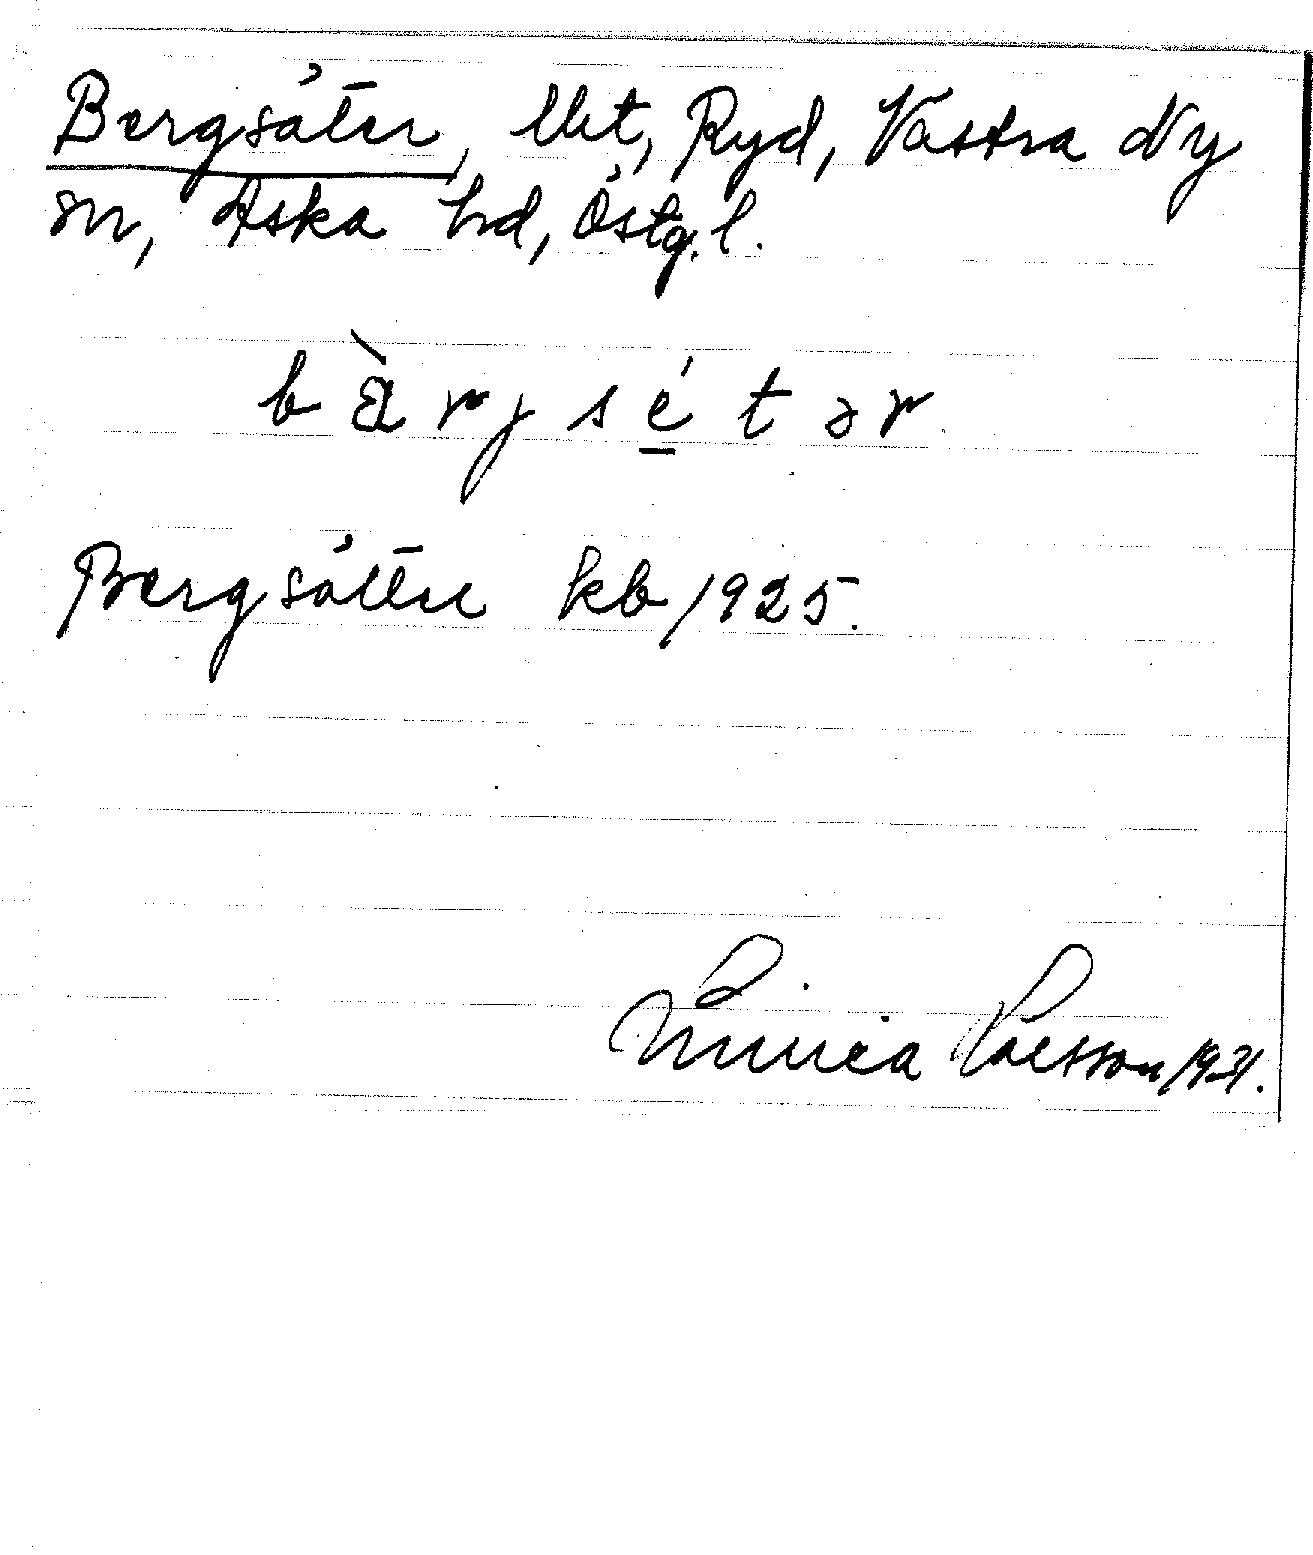 Bergsäter, lht, Ryd, Västra Ny
sn, Aska hd, Östg. l.
b à r j s é t ə r
Bergsätter kb 1925.
Linnea Larsson 1931.